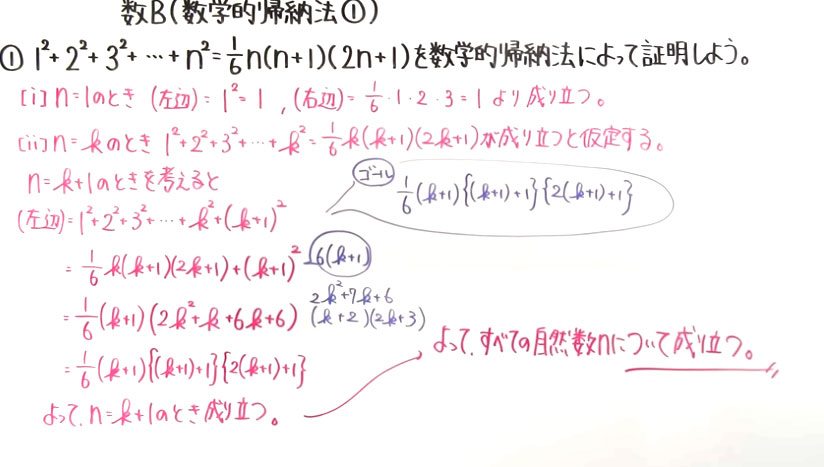 数B(数学的帰納法①)
① 1²+2²+3²+…+n²=1/6n(n+1)(2n+1)を数学的帰納法によって証明しよう。
[i] n=1のとき (左辺)=1²=1, (右辺)=1/6・1・2・3=1より成り立つ。
[ii] n=kのとき 1²+2²+3²+…+k²=1/6k(k+1)(2k+1)が成り立つと仮定する。
n=k+1のときを考えると
ゴール 1/6(k+1){(k+1)+1}{2(k+1)+1}
(左辺)=1²+2²+3²+…+k²+(k+1)²
=1/6k(k+1)(2k+1)+(k+1)² 6(k+1)
=1/6(k+1)(2k²+k+6k+6) 2k²+7k+6
(k+2)(2k+3)
=1/6(k+1){(k+1)+1}{2(k+1)+1}
よって、n=k+1のとき成り立つ。
よって、すべての自然数nについて成り立つ。